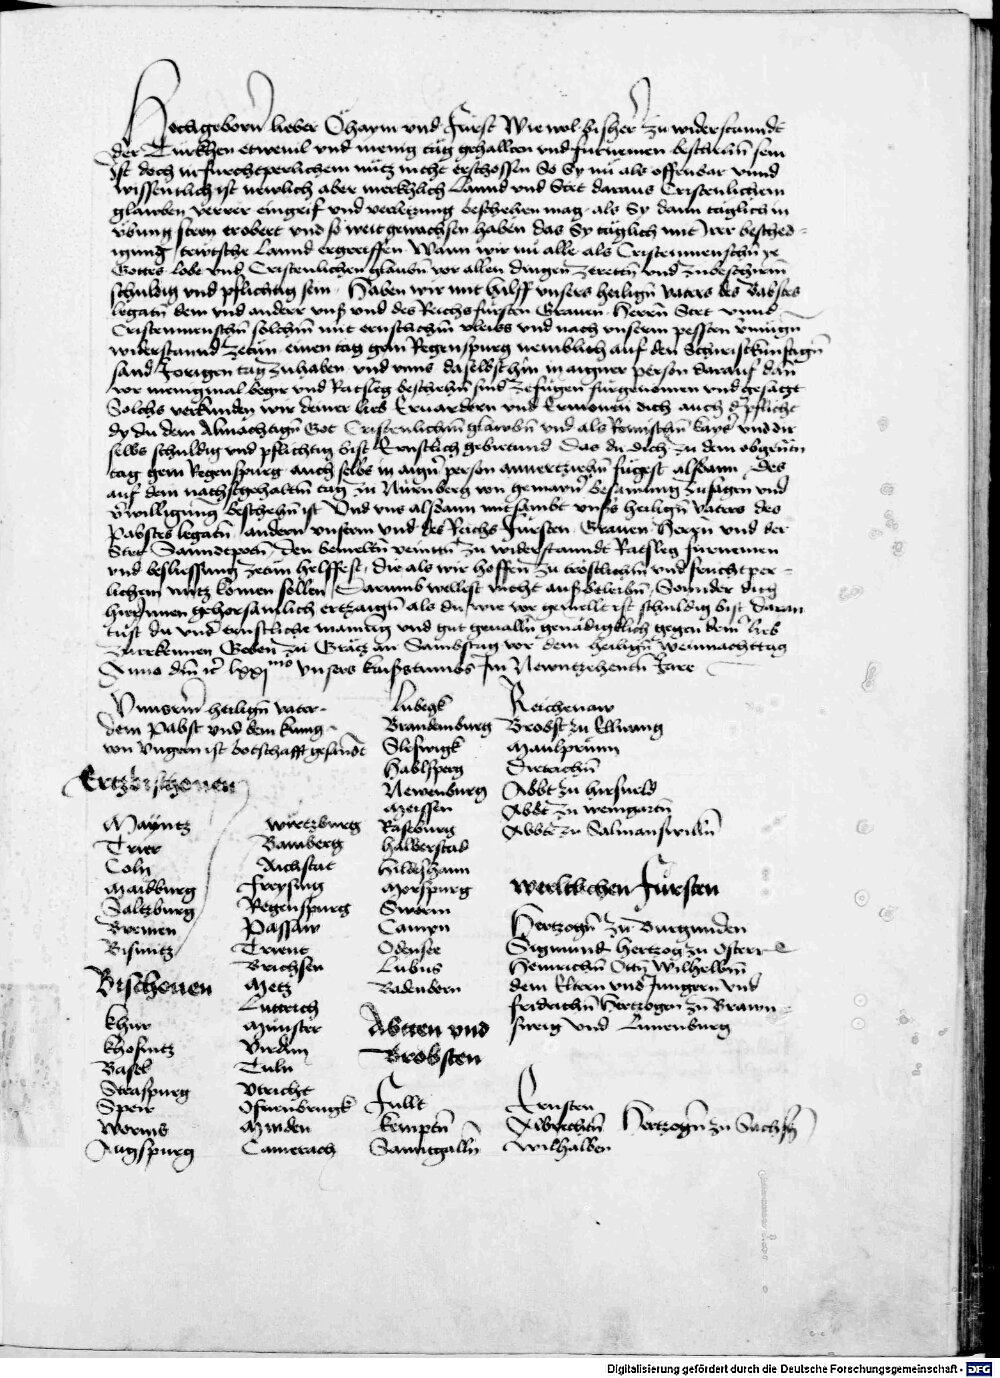 Hochgeborn̄ lieber Ohaym vnd Fürst Wie wol bisher zu widerstanndt
der Türkhen etweuil vnd menig täg gehallten vnd furnemen beschehn̄ sein
Ist doch in furchtperlichem nütz nicht erschossen So Sy nü als offenbar vnnd
wissentlich ist newlich aber merkhlich Lannd vnd Stet daraus Cristenlichem
glawben verrer eingriff vnd verletzung beschehen mag als Sy dann täglich in
vbung stern erobert vnd so weit gewachsen haben das Sy täglich mit Irer besched-
igung tewtsche Lannd ergreiffen Wann wir nü alle als Cristenmenschn̄ ye
Gottes lobe vnd Cristenlichen glaubn̄ vor allen dingen zerettn̄ vnd zubeschirm̄
schuldig vnd pflichtig sein Haben wir mit hilff vnnsers heilign̄ vaters des Babstes
legatn̄ dem vnd andern vnß vnd des Reichs fürsten Grauen Herrn̄ Stet vnnd
Cristenmenschn̄ solchm̄ mit ernstlichm̄ vleiss vnd nach vnserm pessten vermügn̄
widerstannd zetün einen tag gen Regenspurg nemblich auf den Schiristkünftign̄
sand Jorigen tag zuhaben vnd vnns daselbsthin in aigner person darauf dan̄
vor menigmal begir vnd Ratsleg beschehn̄ sind zefügen fürgenomen vnd gesätzt
Solchs verkunden wir deiner lieb Eruordern vnd Ermonen dich auch d pflicht
dy du dem Almachtign̄ Got Cristenlichm̄ glawbn̄ vnd als Romischn̄ kayser vnd dir
selbs schuldig vnd pflichtig bist Ernstlich gebietund Das du dich zu dem obgenn̄tn̄
tag gen Regenspurg auch selbs in aigner person annertziehn̄ fügest alsdann Des
auf dem nachstgehaltn̄ tag zu Nürnberg von gemainer besamlung zusagen vnd
verwilligung beschehn̄ ist Vnd vns alsdann mitsambt vnsers heilign̄ vaters des
Pabstes legatn̄ andern vnsern vnd des Reichs Fürsten Grauen Herrn̄ vnd der
Stet Sanndepotn̄ Den bemeltn̄ zu widerstanndt Ratsleg fürnemen
vnd besliessung zetun helffest, die als wir hoffen zu tröstlichm̄ vnd fruchtper-
lichem nutz komen sollen Darumb wellest nicht ausbeleibn̄ Sonnder dich
hirInnen gehorsamlich ertzaign̄ als du wie vor gemellt ist schuldig bist Daran
tust du vnnser ernstliche maining vnd gut geualln̄ genädigklich gegen deiner lieb
Zuerkennen Geben zu Grätz an Sambstag vor dem heilign̄ weinnachttag
Anno dm̄ lxximo vnsers kaisertumbs Im Newntzehentn̄ Jare
Vnnserm̄ heilign̄ vater
dem Pabst vnd dem kunig
von Vngern ist botschafft gesandt
Ertzbischouen
Mayntz
Trier
Coln
Maidburg
Saltzburg
Bremen
Bisuntz
Bischouen
Khur
Khostnitz
Basel
Straspurg
Speir
Worms
Augspurg
Wirtzburg
Bamberg
Aichstat
Freysing
Regenspurg
Passaw
Trient
Brichsen
Metz
Luttich
Münster
Virdun
Tuln
Vtricht
Osnnbrugk
Minden
Camerach
Lubegk
Brandemburg
Sleswigk
Hablsperg
Newenburg
Meissen
Raseburg
Halberstad
Hildeshaim
Morspurg
Swerin
Campn
Odensee
Lubus
Badenborn
Abtten vnd
Brobsten
Fullt
Kemptn̄
Sanntgalln̄
Reichenaw
Brobst zu Elwang
Maulprunn̄
Abbt zu hirsueld
Abbt zu weingartn̄
Abbt zu Salmanswilln̄
Werltlichen Fürsten
Hertzogn̄ zu Burgunden
Sigmund Hertzog zu Osterr
Heinrichn̄ Ottn̄ Wilhelbm̄
dem Eltern vnd Jungern vnd
Fridrichn̄ Hertzogen zu Brawn-
sweig vnd Lunenburg
Ernsten
Albrechtn̄ Hertzogn̄ zu Sachsn̄
Wilhalben
Digitalisierung gefördert durch die Deutsche Forschungsgemeinschaft - DFG